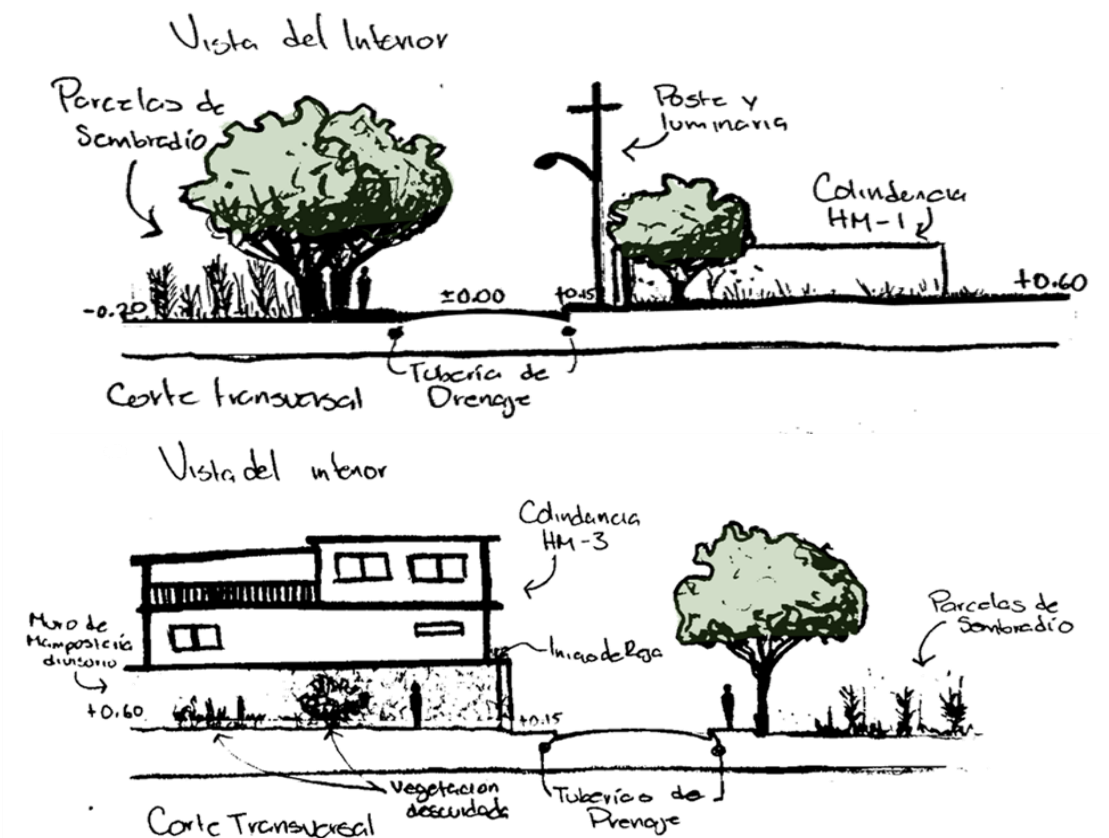 Vista del Interior
Parcelas de
Sembradío
Poste y
luminaria
Colindancia
HM-1
-0.20
±0.00
+0.15
+0.60
Tubería de
Drenaje
Corte transversal
Vista del interior
Colindancia
HM-3
Muro de
Mampostería
divisorio
Inicio de Reja
Parcelas de
Sembradío
+0.60
+0.15
Vegetacion
descuidada
Tuberías de
Drenaje
Corte Transversal